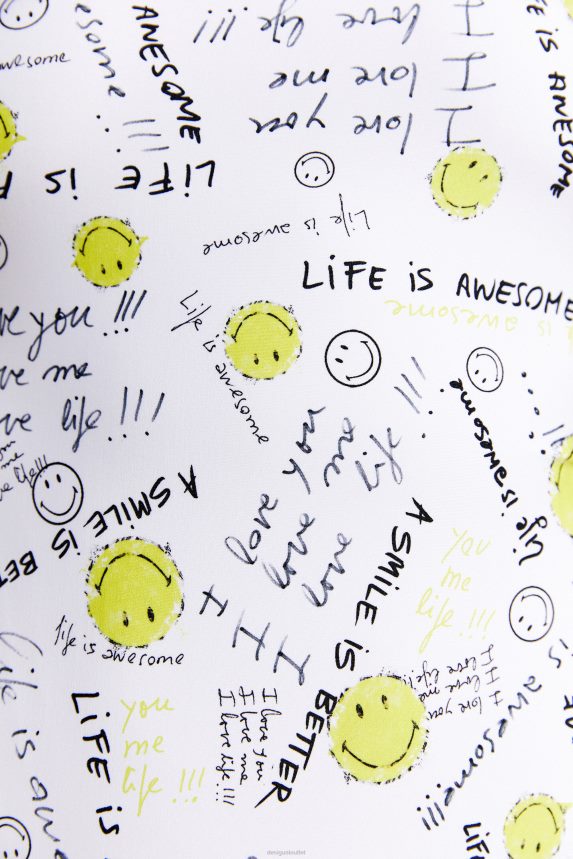 I love life !!!
I love me
I love you
awesome
esome !!!
AWESOME
LiFE iS
E iS AWESOME
Life is awesome
LiFE iS AWESOME
is awesome
ve you !!!
ve me
ve life !!!
Life is awesome
I love you
I love me
I love life !!!
Life is awesome
A SMiLE iS BET
A SMiLE iS BETTER
you
me
life !!!
life is awesome
LiFE iS
you
me
life !!!
I love you
I love me
I love life !!!
I love you
I love me
I love life!!!
is awesome!!!
life is aw
LiFE
designoutlet